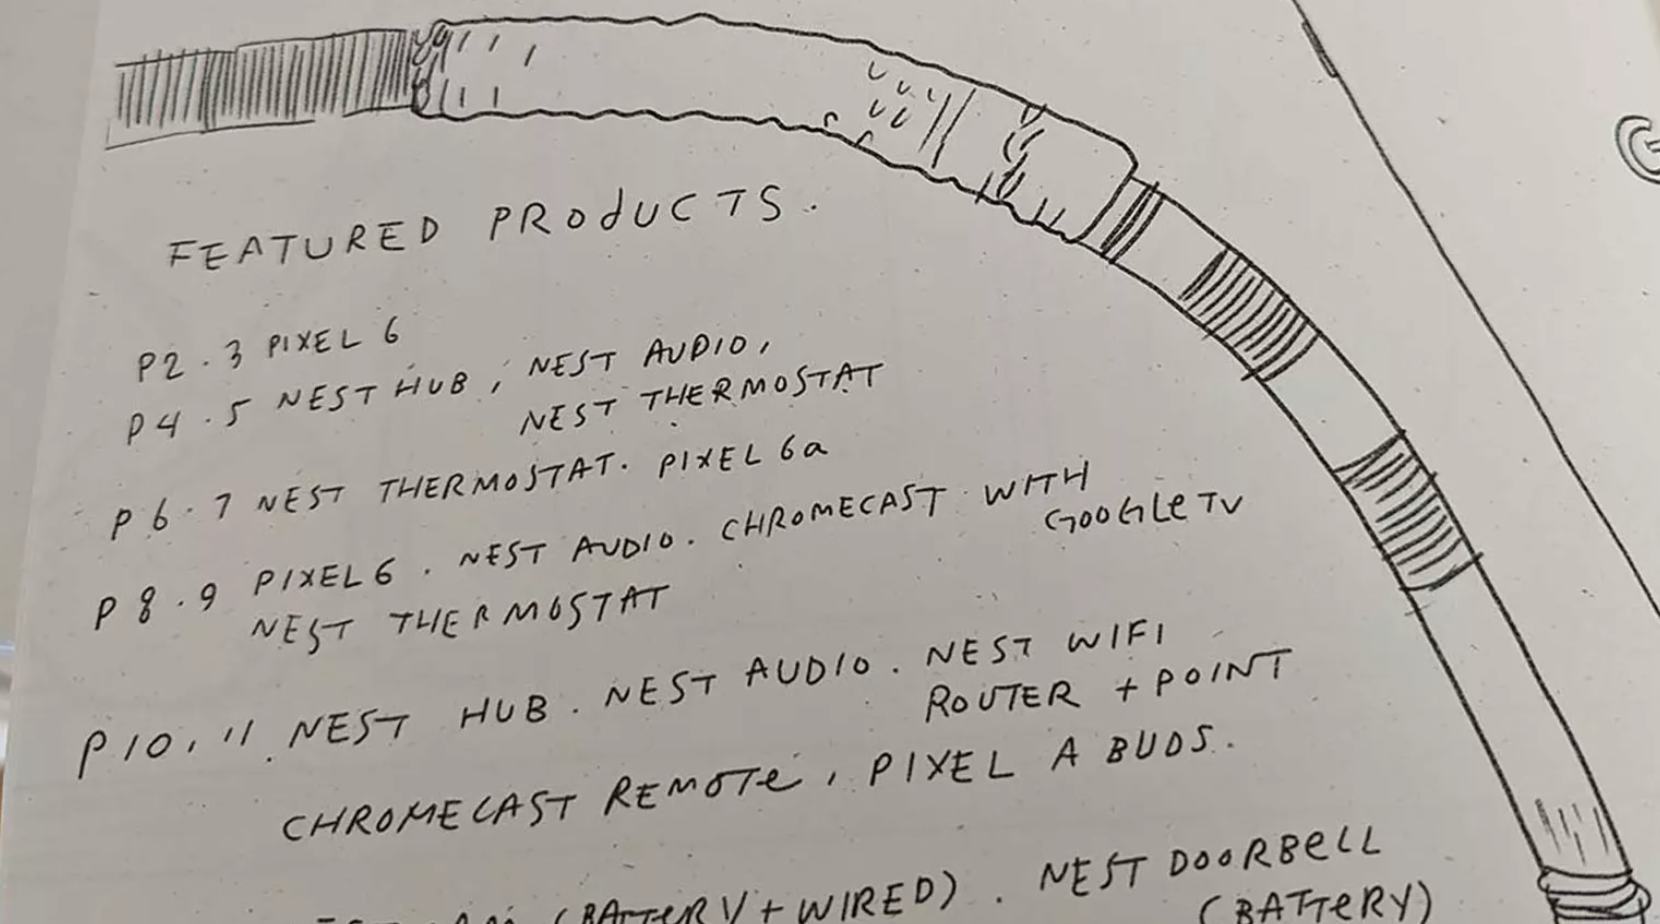 FEATURED PRODUCTS.
P2.3 PIXEL 6
P4.5 NEST HUB, NEST AUDIO,
NEST THERMOSTAT
P6.7 NEST THERMOSTAT. PIXEL 6a
P8.9 PIXEL 6. NEST AUDIO. CHROMECAST WITH
GOOGLE TV
NEST THERMOSTAT
P10.11 NEST HUB. NEST AUDIO. NEST WIFI
ROUTER + POINT
CHROMECAST REMOTE, PIXEL A BUDS.
(BATTERY + WIRED). NEST DOORBELL
(BATTERY)